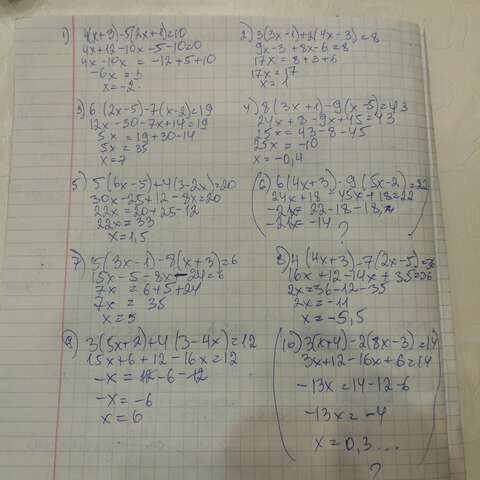 1) 4(x+3)-5(2x+1)=10
4x+12-10x-5-10=0
4x-10x = -12+5+10
-6x = 3
x=-2
2) 3(3x-1)+2(4x-3)=8
9x-3+8x-6=8
17x = 8+3+6
17x = 17
x = 1
3) 6(2x-5)-7(x-2)=19
12x-30-7x+14=19
5x = 19+30-14
5x = 35
x=7
4) 8(3x+1)-9(x-5)=43
24x+8-9x+45=43
25x = 43-8-45
25x = -10
x=-0,4
5) 5(6x-5)+4(3-2x)=20
30x-25+12-8x=20
22x=20+25-12
22x=33
x=1,5
(6) 6(4x+3)-9(5x-2)=22
24x+18 - 45x+18=22
-21x= 22-18-18
-21x= -14
?
7) 5(3x-1)-8(x+3)=6
15x-5-8x-24=6
7x = 6+5+24
7x = 35
x=5
8) 4(4x+3)-7(2x-5)=36
16x+12-14x+35=36
2x=36-12-35
2x=-11
x=-5,5
9) 3(5x+2)+4(3-4x)=12
15x+6+12-16x=12
-x = 12-6-12
-x=-6
x=6
(10) 3(x+4)-2(8x-3)=14
3x+12-16x+6=14
-13x=14-12-6
-13x=-4
x=0,3...
?